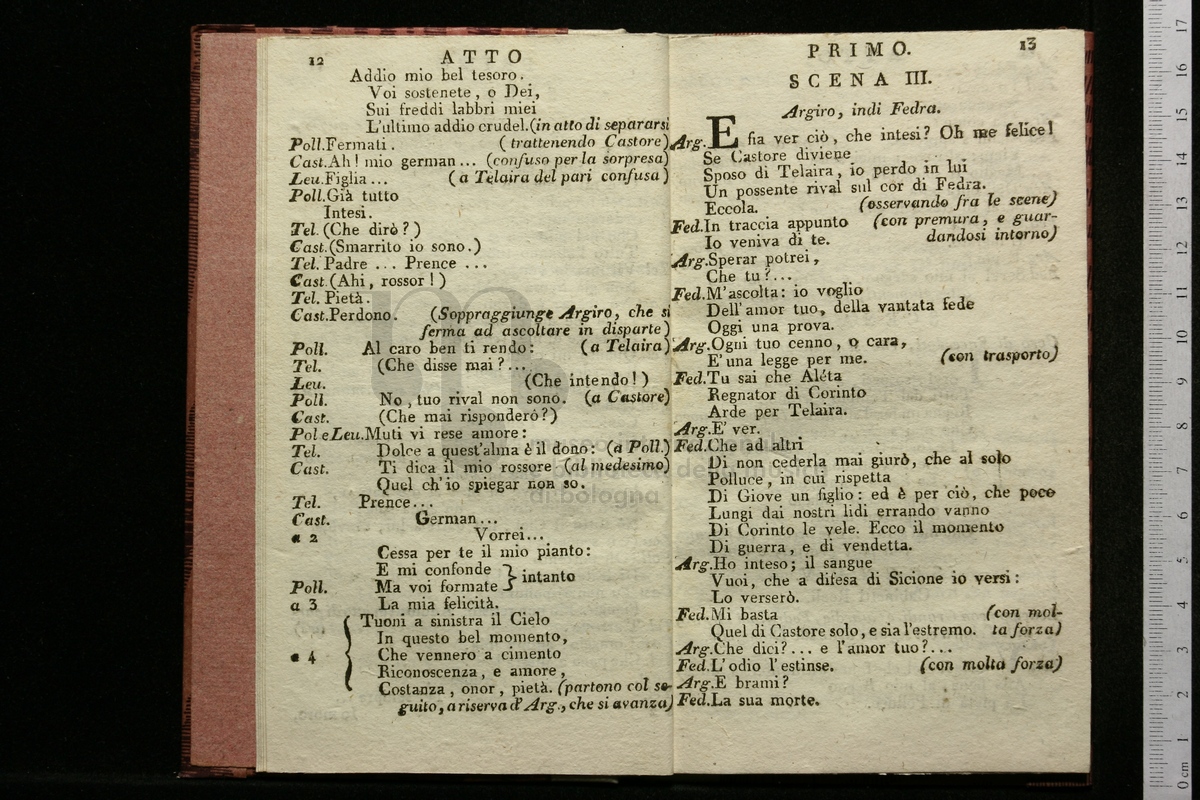 12
ATTO
Addio mio bel tesoro.
Voi sostenete, o Dei,
Sui freddi labbri miei
L'ultimo addio crudel. (in atto di separarsi
Poll. Fermati. (trattenendo Castore)
Cast. Ah! mio german... (confuso per la sorpresa)
Leu. Figlia... (a Telaira del pari confusa)
Poll. Già tutto
Intesi.
Tel. (Che dirò?)
Cast. (Smarrito io sono.)
Tel. Padre ... Prence ...
Cast. (Ahi, rossor!)
Tel. Pietà.
Cast. Perdono. (Soppraggiunge Argiro, che si
ferma ad ascoltare in disparte)
Poll. Al caro ben ti rendo: (a Telaira)
Tel. (Che disse mai?...
Leu. (Che intendo!)
Poll. No, tuo rival non sono. (a Castore)
Cast. (Che mai risponderò?)
Pol e Leu. Muti vi rese amore:
Tel. Dolce a quest'alma è il dono: (a Poll.)
Cast. Ti dica il mio rossore (al medesimo)
Quel ch'io spiegar non so.
Tel. Prence...
Cast. German...
a 2 Vorrei...
Cessa per te il mio pianto:
E mi confonde } intanto
Poll. Ma voi formate
a 3 La mia felicità.
Tuoni a sinistra il Cielo
In questo bel momento,
a 4 { Che vennero a cimento
Riconoscenza, e amore,
Costanza, onor, pietà. (partono col se-
guito, a riserva d'Arg., che si avanza)
PRIMO.
13
SCENA III.
Argiro, indi Fedra.
Arg. E fia ver ciò, che intesi? Oh me felice!
Se Castore diviene
Sposo di Telaira, io perdo in lui
Un possente rival sul cor di Fedra.
Eccola. (osservando fra le scene)
Fed. In traccia appunto (con premura, e guar-
Io veniva di te. dandosi intorno)
Arg. Sperar potrei,
Che tu?...
Fed. M'ascolta: io voglio
Dell'amor tuo, della vantata fede
Oggi una prova.
Arg. Ogni tuo cenno, o cara,
E' una legge per me. (con trasporto)
Fed. Tu sai che Aléta
Regnator di Corinto
Arde per Telaira.
Arg. E' ver.
Fed. Che ad altri
Di non cederla mai giurò, che al solo
Polluce, in cui rispetta
Di Giove un figlio: ed è per ciò, che poco
Lungi dai nostri lidi errando vanno
Di Corinto le vele. Ecco il momento
Di guerra, e di vendetta.
Arg. Ho inteso; il sangue
Vuoi, che a difesa di Sicione io versi:
Lo verserò.
Fed. Mi basta (con mol-
Quel di Castore solo, e sia l'estremo. ta forza)
Arg. Che dici?... e l'amor tuo?...
Fed. L'odio l'estinse. (con molta forza)
Arg. E brami?
Fed. La sua morte.
0 cm 1 2 3 4 5 6 7 8 9 10 11 12 13 14 15 16 17